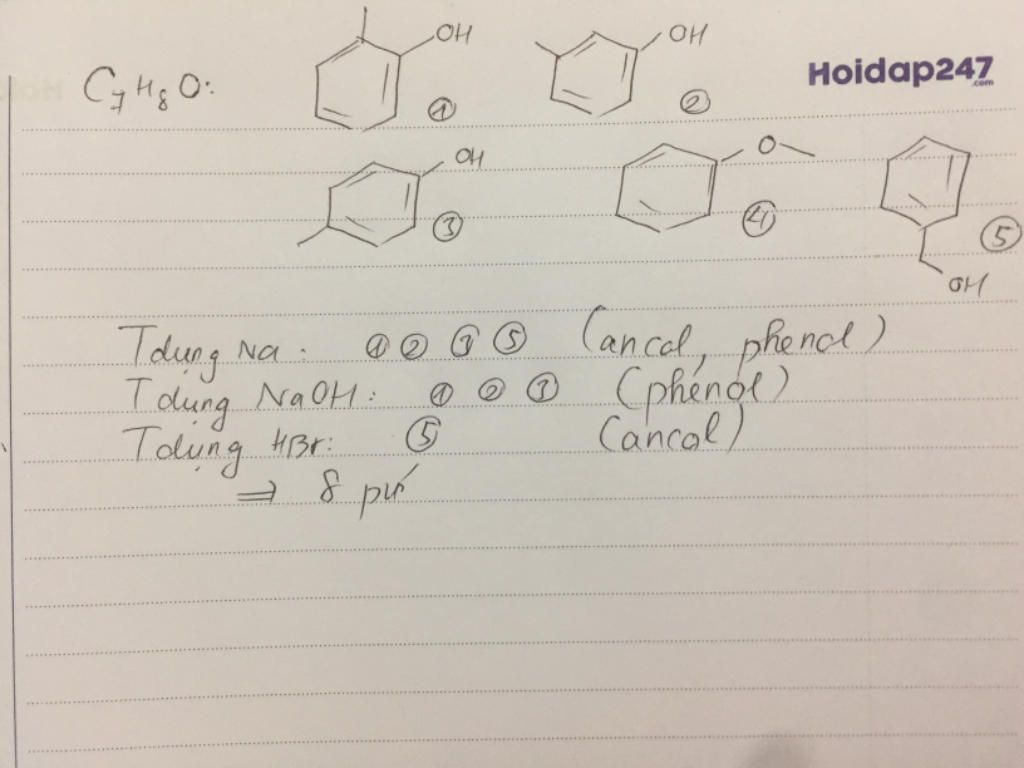 OH OH Hoidap247.com
C7H8O: ① ②
OH O
③ ④ ⑤
OH
T dụng Na: ① ② ③ ⑤ (ancol, phenol)
T dụng NaOH: ① ② ③ (phenol)
T dụng HBr: ⑤ (ancol)
⇒ 8 pư